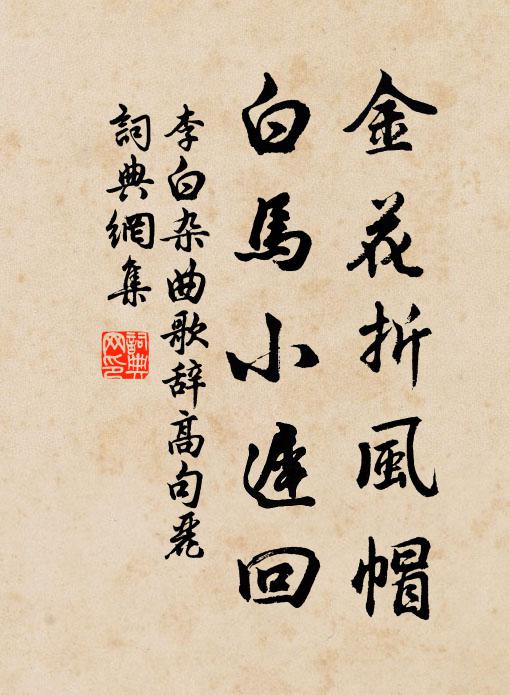 金花折風帽
白馬小遲回
李白杂曲歌辞高句麗
詞典網集
詞典
网印